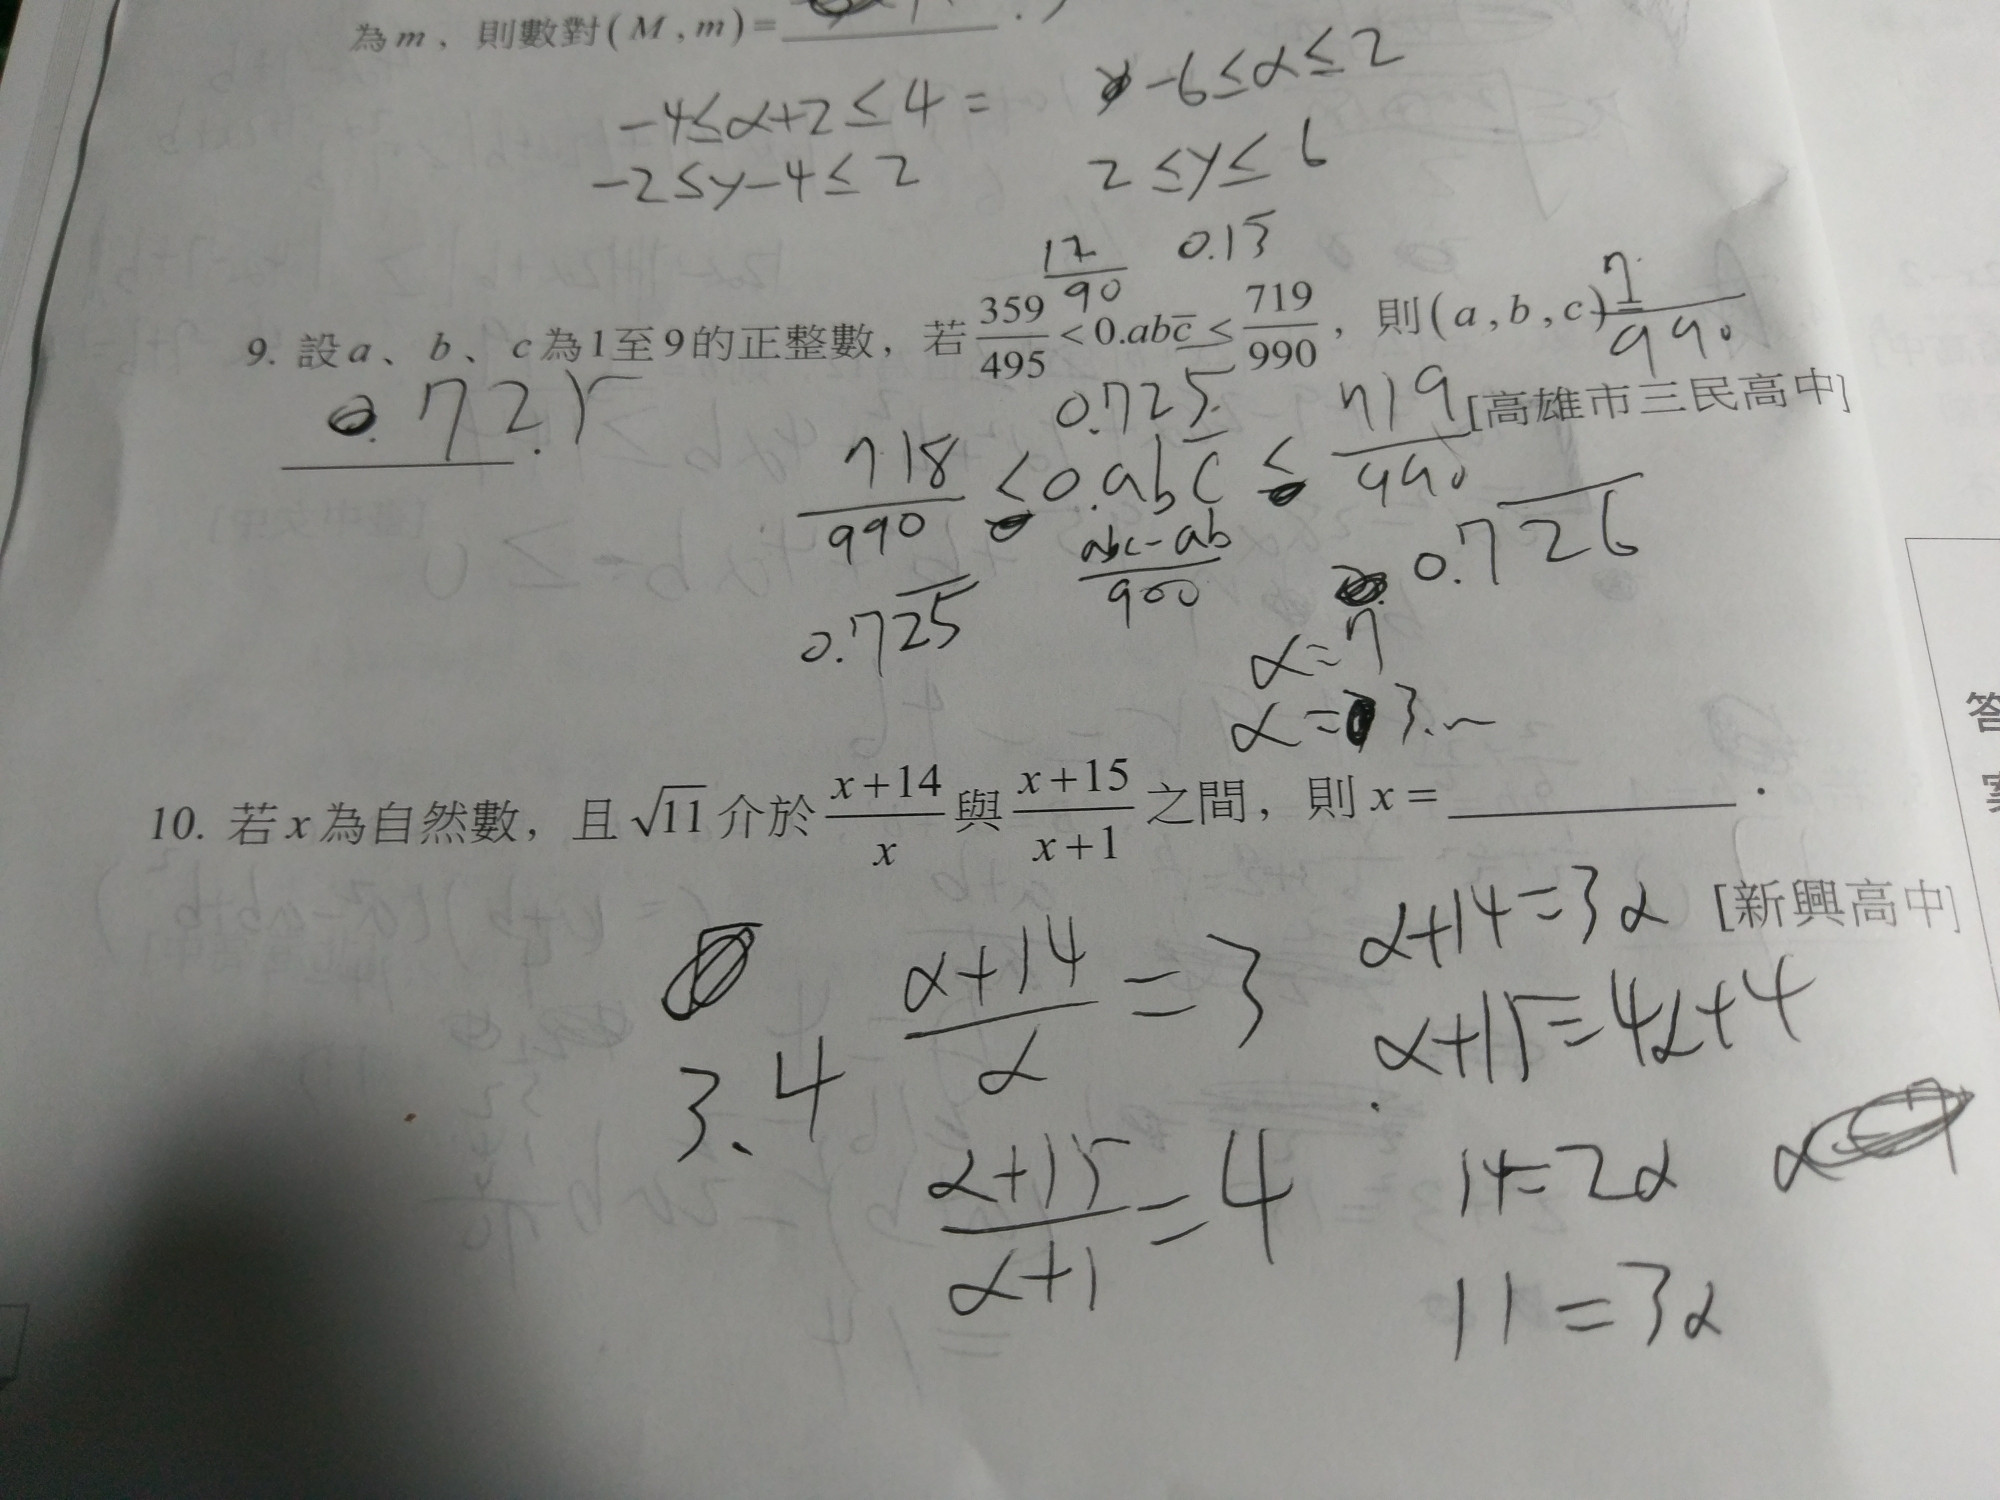 為m，則數對(M,m)=________.
-4≤x+2≤4= -6≤x≤2
-2≤y-4≤2 2≤y≤6
17/90 0.15
9. 設a、b、c為1至9的正整數，若 359/495 < 0.abc̅ ≤ 719/990，則(a,b,c)=
7/990
0.725
0.725̅ [高雄市三民高中]
718/990 < 0.abc̅ ≤ 719/990
(abc-ab)/900
0.72̅5̅ 0.72̅6̅
x=7
x=3.~
10. 若x為自然數，且√11介於 (x+14)/x 與 (x+15)/(x+1) 之間，則x=________.
[新興高中]
答
案
(x+14)/x=3 x+14=3x
3.4 x+15=4x+4
(x+15)/(x+1)=4 14=2x x
11=3x